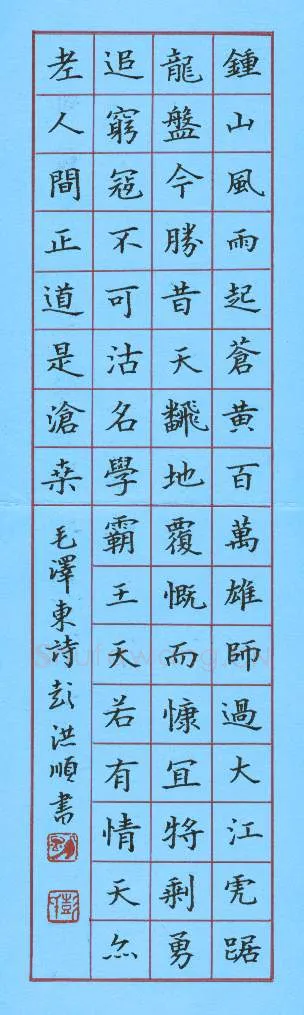 鍾山風雨起蒼黄百萬雄師過大江虎踞
龍盤今勝昔天飜地覆慨而慷宜將剩勇
追窮冦不可沽名學霸王天若有情天亦
老人間正道是滄桒
毛澤東詩彭洪順書
彭